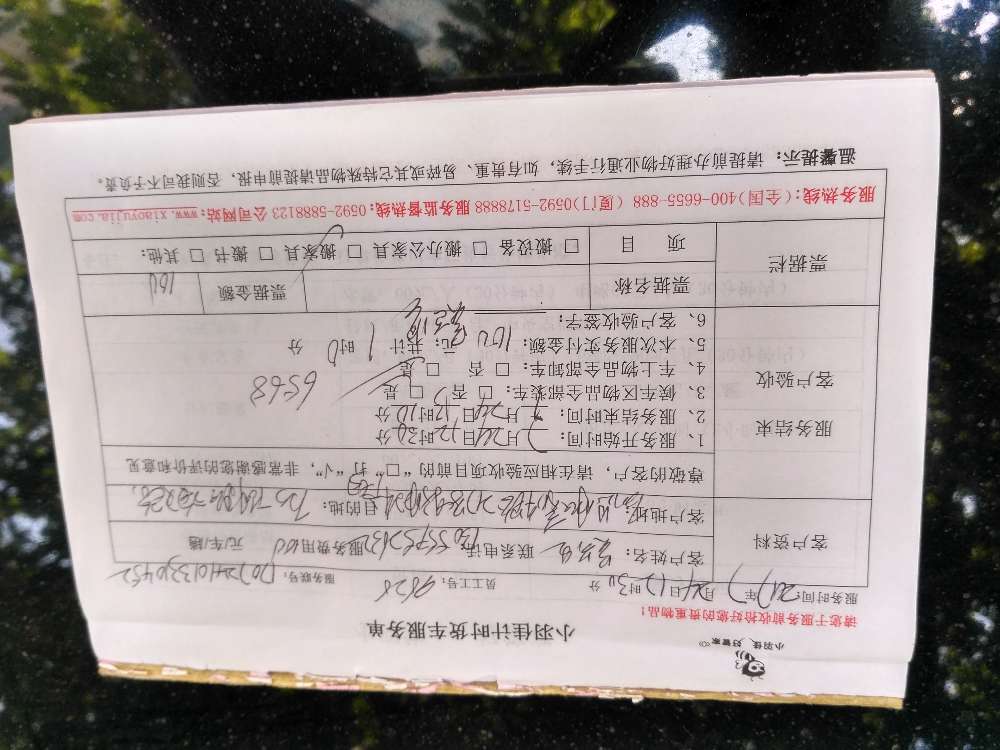 小羽佳 好管家
小羽佳计时货车服务单
请您于服务前收拾好您的贵重物品！
服务时间：2017年7月24日12时30分 员工号：9628 服务联号：
客户资料
客户姓名： 联系电话： 服务费用100元/车/趟
客户地址： 目的地：
尊敬的客户，请在相应验收项目前的“□”打“√”，非常感谢您的评价和意见
服务结束 客户验收
1、服务开始时间：7月24日12时30分
2、服务结束时间：7月24日13时10分
3、候车区物品全部装车：□ 否 □ 是
4、车上物品全部卸车：□ 否 □ 是
6568
5、本次服务实付金额：100元；共计1时0分
6、客户验收签字：
票据栏
票据名称 票据金额 100
项 目 □ 搬设备 □ 搬办公家具 □ 搬家具 □ 搬书 □ 其他：
服务热线：(全国)400-6655-888 (厦门)0592-5178888 服务监督热线：0592-5888123 公司网站：www.xiaoyujia.com
温馨提示：请提前办理好物业通行手续，如有贵重、易碎或其它特殊物品请提前申报，否则我司不予负责。